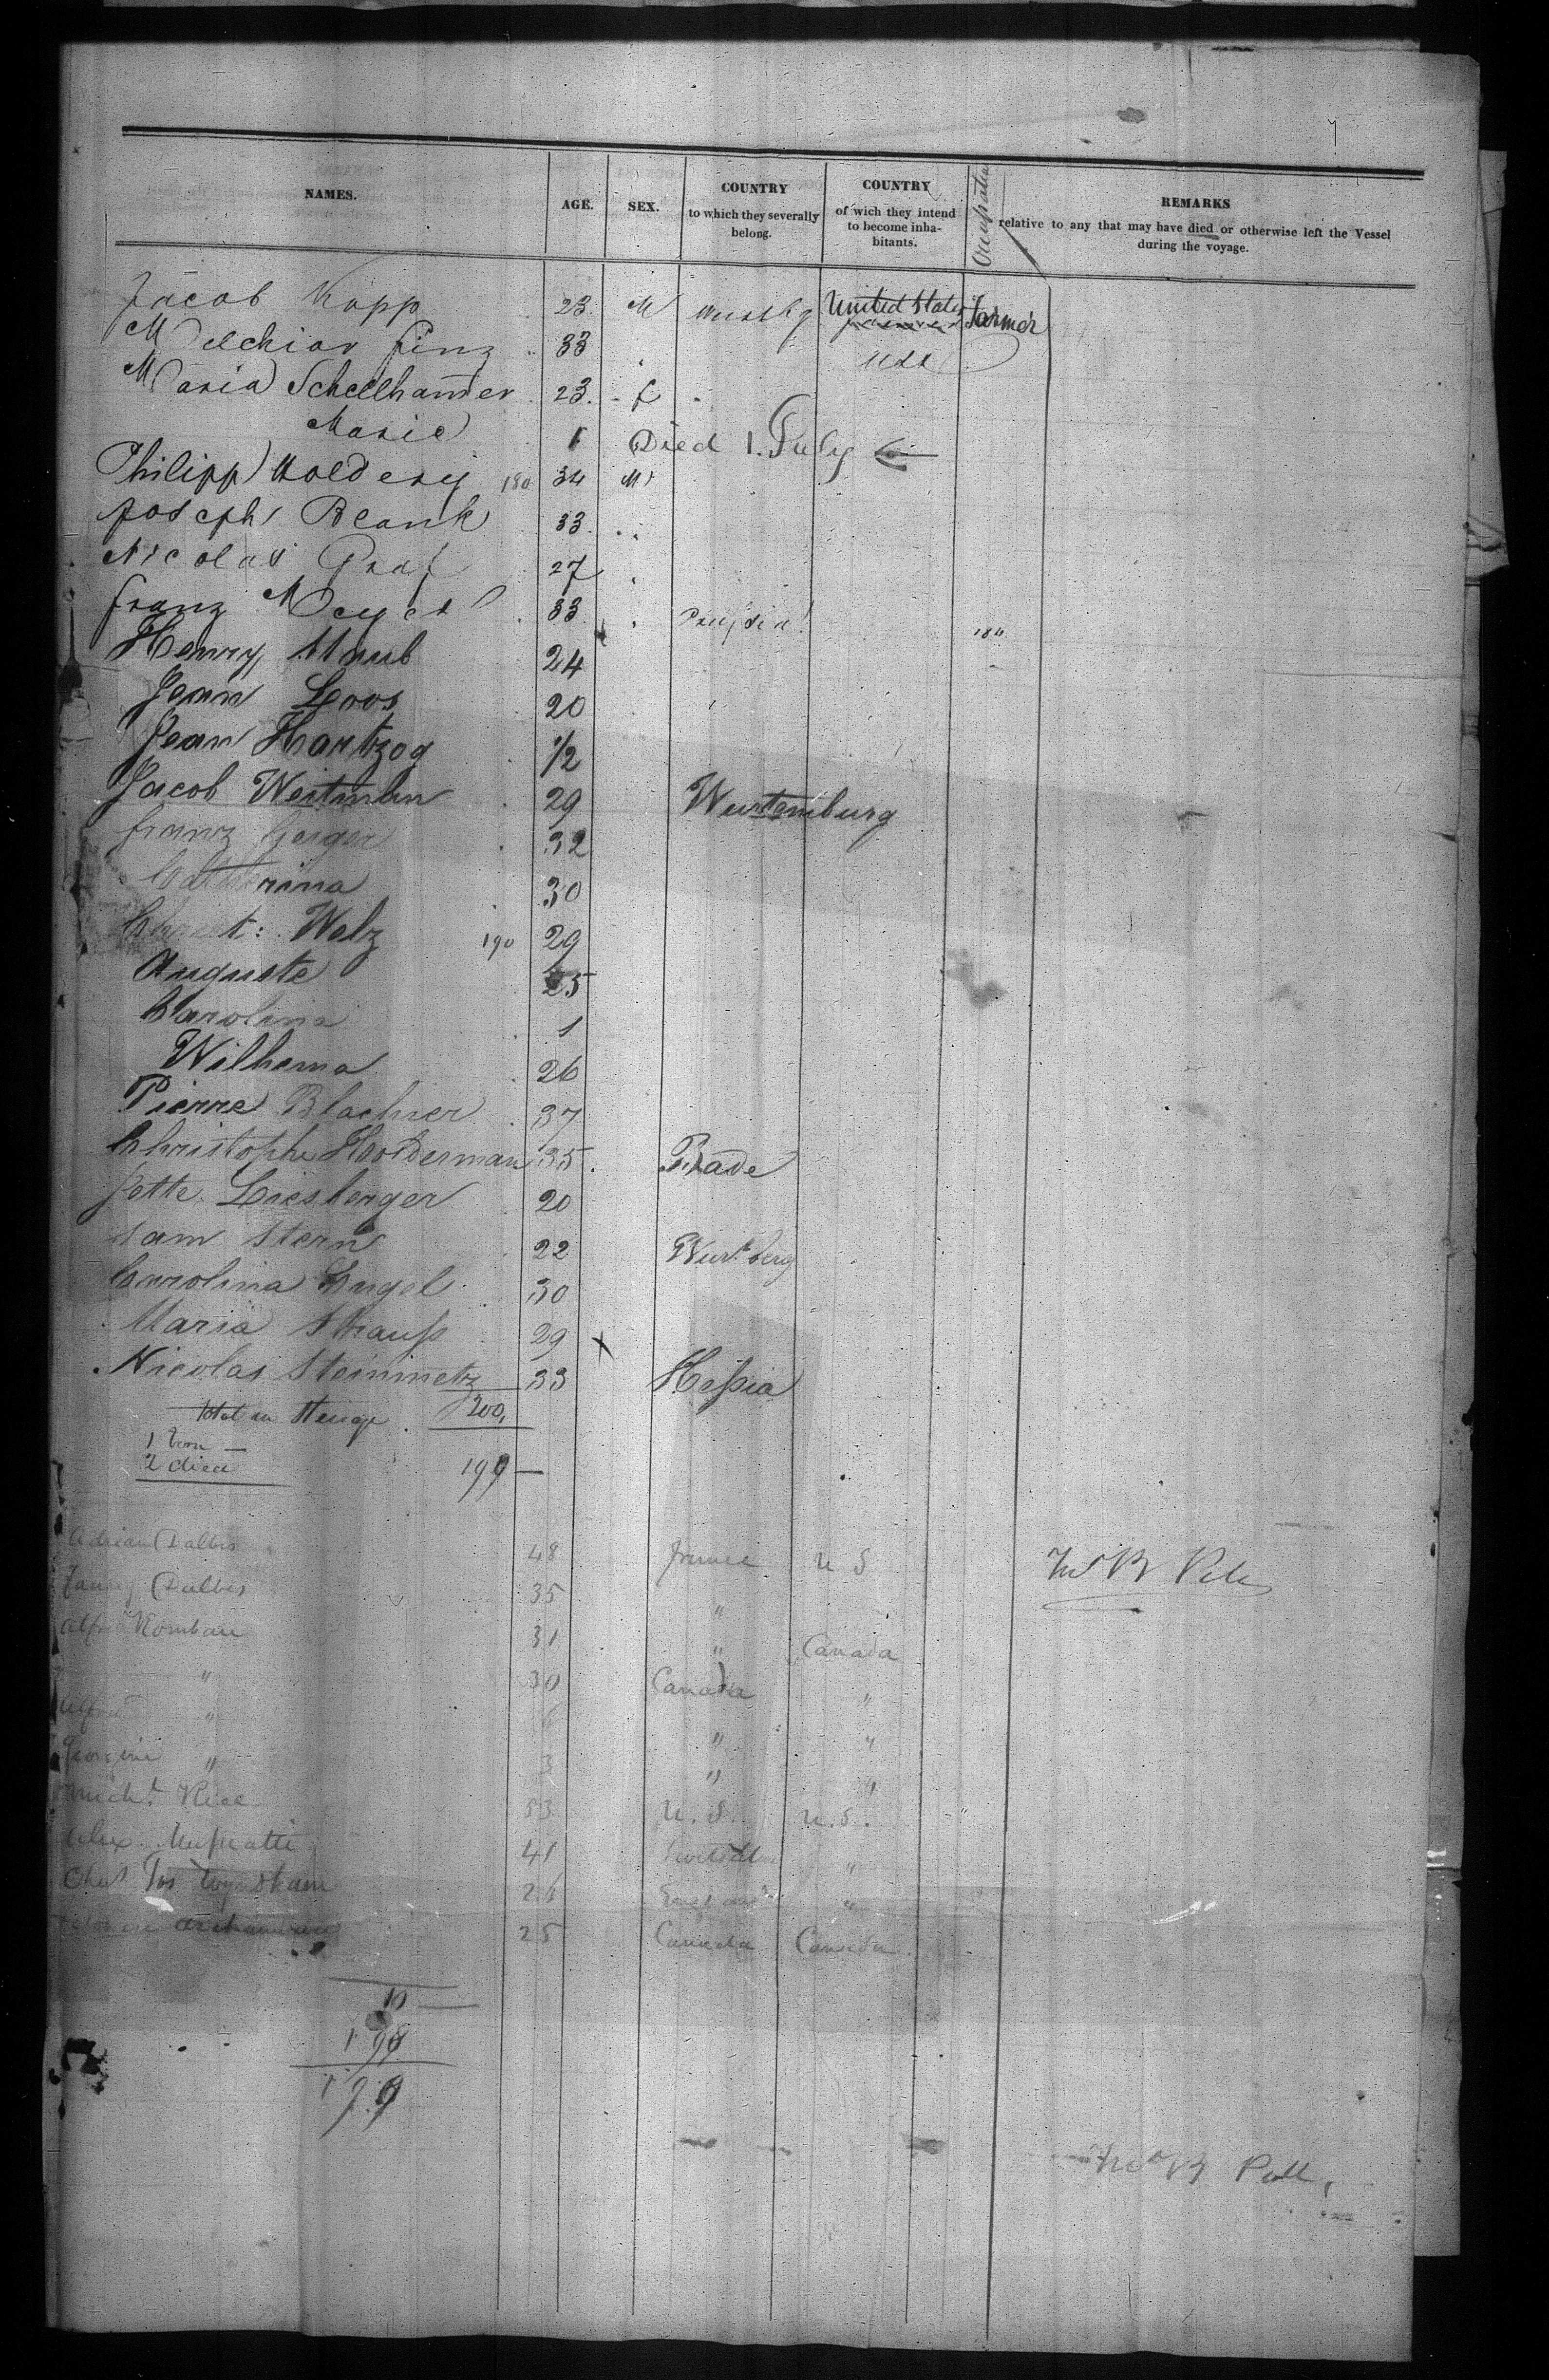 NAMES. AGE. SEX. COUNTRY to which they severally belong. COUNTRY of wich they intend to become inhabitants. Occupation REMARKS relative to any that may have died or otherwise left the Vessel during the voyage.
Jacob Kopp 23. M Wurtbg United States farmer
Melchior Finz 33 USA
Maria Schellhammer 23. f
Marie 1 Died 1. July
Philipp 180 34 M
Joseph Blank 33.
Nicolas Graf 27
franz Meyer 33 Prussia 180
Henry Staub 24
Jean Loos 20
Jean Hartzog 1/2
Jacob Weitman 29 Wurtemburg
franz Geiger 32
Catherina 30
Christ: Welz 190 29
Auguste 25
Carolina 1
Wilhema 26
Pierre Blachier 37
Christophe Holderman 35. Bade
Jette Liesberger 20
Sam Stern 22 Wurtberg
Carolina Engel 30
Maria Strauss 29 x
Nicolas Steinmetz 33 Hessia
Total in Steuage 200,
1 born
2 died 199
Adrian Dalbis 48 France U S
Fanny Dalbis 35 "
Alfred 31 " Canada
" 30 Canada "
Alfred " " "
Georgine " 3 " "
Mich. Rice 53 U. S. U. S.
Alex. 41 "
Chas Jos Wyndham 26 England "
25 Canada Canada
10